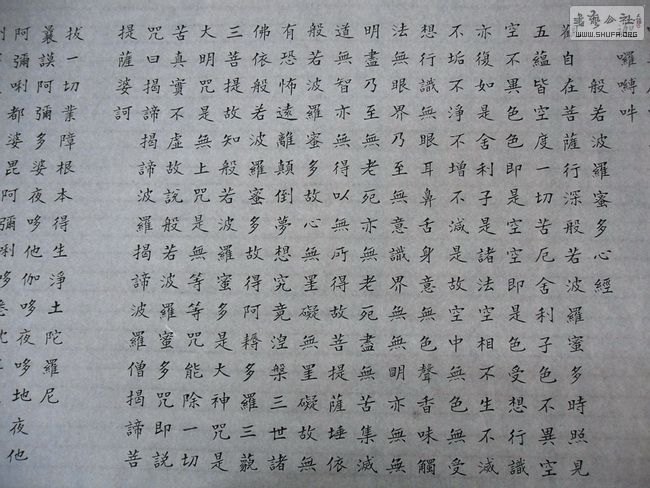 囉嚩吽
般若波羅蜜多心經
觀自在菩薩行深般若波羅蜜多時照見
五蘊皆空度一切苦厄舍利子色不異空
空不異色色即是空空即是色受想行識
亦復如是舍利子是諸法空相不生不滅
不垢不淨不增不減是故空中無色無受
想行識無眼耳鼻舌身意無色聲香味觸
法無眼界乃至無意識界無無明亦無無
明盡乃至無老死亦無老死盡無苦集滅
道無智亦無得以無所得故菩提薩埵依
般若波羅蜜多故心無罣礙無罣礙故無
有恐怖遠離顛倒夢想究竟涅槃三世諸
佛依般若波羅蜜多故得阿耨多羅三藐
三菩提故知般若波羅蜜多是大神咒是
大明咒是無上咒是無等等咒能除一切
苦真實不虛故說般若波羅蜜多咒即說
咒曰揭諦揭諦波羅揭諦波羅僧揭諦菩
提薩婆訶
拔一切業障根本得生淨土陀羅尼
曩謨阿彌多婆夜哆他伽哆夜哆地夜他
阿彌唎都婆毘阿彌唎哆
WWW.SHUFA.ORG